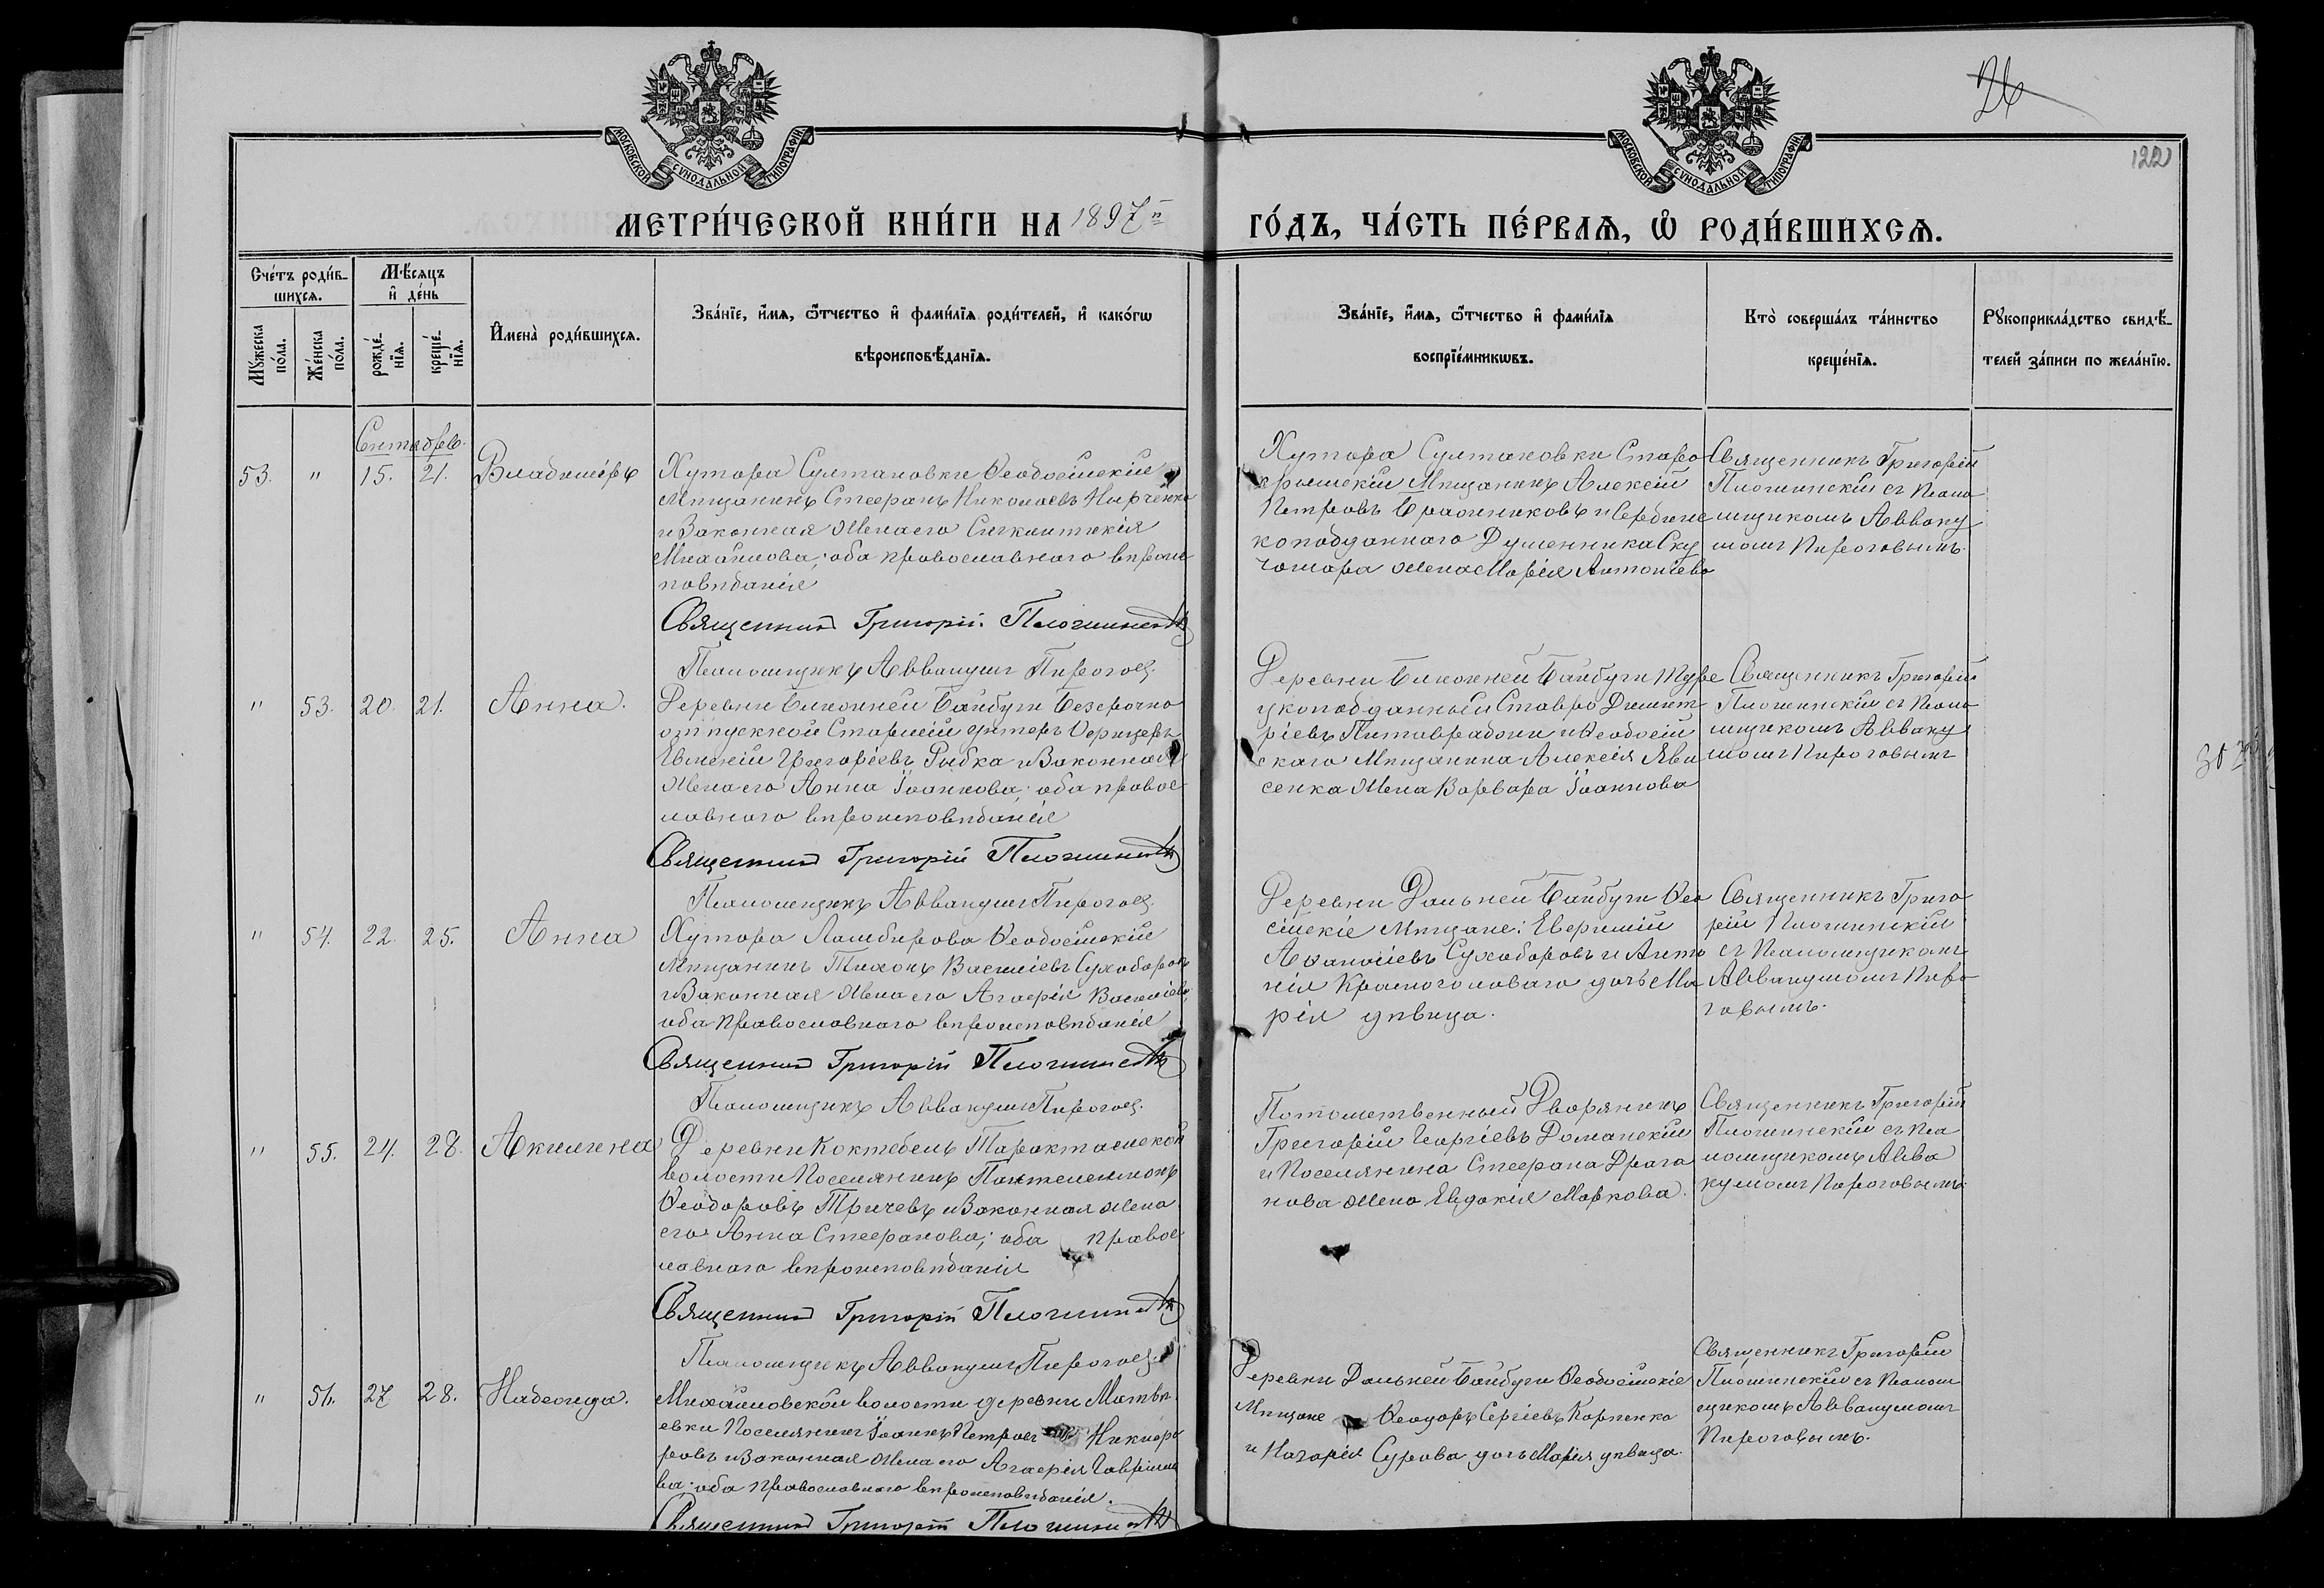 26
122
МОСКОВСКОЙ СѴНОДАЛЬНОЙ ТИПОГРАФІИ
МОСКОВСКОЙ СѴНОДАЛЬНОЙ ТИПОГРАФІИ
МЕТРИ́ЧЕСКОЙ КНИ́ГИ НА 1897й ГО́ДЪ, ЧА́СТЬ ПЕ́РВАѦ, Ѡ҆ РОДИ́ВШИХСѦ.
Сче́тъ роди́в-
шихсѧ.
Мꙋ́жеска по́ла.
Же́нска по́ла.
Мѣ́сяцъ
и҆ де́нь
рожде́-
нїѧ.
креще́-
нїѧ.
И҆мена̀ роди́вшихсѧ.
Зва́нїе, и҆́мѧ, ѻ҆́тчество и҆ фами́лїѧ роди́телей, и҆ како́гѡ
вѣроисповѣ́данїѧ.
Зва́нїе, и҆́мѧ, ѻ҆́тчество и҆ фами́лїѧ
воспрїе́мникѡвъ.
Кто̀ соверша́лъ та́инство
креще́нїѧ.
Рꙋкоприкла́дство свидѣ́-
телей за́писи по жела́нїю.
Сентябрь.
53. " 15. 21. Владиміръ
Хутора Султановки Ѳеодосійскій
Мѣщанинъ Стефанъ Николаевъ
и Законная Жена его Синклитикія
Михайлова; оба православнаго вѣроис
повѣданія
Священникъ Григорій
Псаломщикъ Аввакумъ Пироговъ.
Хутора Султановки Старо
крымскій Мѣщанинъ Алексій
Петровъ
коподданнаго
жена Марія Антоніева
Священникъ Григорій
съ Псало
мщикомъ Авваку
момъ Пироговымъ.
" 53. 20. 21. Анна.
Деревни Ближней Байбуги Безсрочно
отпускной Старшій унтеръ Офицеръ
Евгеній Григоріевъ Рыбка и Законная
Жена его Анна Іоаннова; оба правос
лавнаго вѣроисповѣданія
Священникъ Григорій
Псаломщикъ Аввакумъ Пироговъ.
Деревни Ближней Байбуги Туре
цкоподданный Ставро Димит
ріевъ и Ѳеодосій
скаго Мѣщанина Алексія
сенка Жена Варвара Іоаннова
Священникъ Григорій
съ Псало
мщикомъ Авваку
момъ Пироговымъ
" 54. 22. 25. Анна
Хутора Ламбирова Ѳеодосійскій
Мѣщанинъ Тихонъ Василіевъ Сухоборовъ
и Законная Жена его Агафія Василіева,
оба Православнаго вѣроисповѣданія
Священникъ Григорій
Псаломщикъ Аввакумъ Пироговъ.
Деревни Дальней Байбуги Ѳео
сійскіе Мѣщане: Евфимій
Аѳанасіевъ Сухоборовъ и Анто
нія Красноголоваго дочь Ма
рія дѣвица.
Священникъ Григо
рій
съ Псаломщикомъ
Аввакумомъ Пиро
говымъ.
" 55. 24. 28. Акилина
Деревни Коктебель Таракташской
волости Поселянинъ Пантелеимонъ
Ѳеодоровъ Тричевъ и Законная жена
его Анна Стефанова; оба правос
лавнаго вѣроисповѣданія
Священникъ Григорій
Псаломщикъ Аввакумъ Пироговъ.
Потомственный Дворянинъ
Григорій Георгіевъ Доманскій
и Поселянина Стефана Драга
нова жена Евдокія Маркова.
Священникъ Григорій
съ Пса
ломщикомъ Авва
кумомъ Пироговымъ.
" 56. 27 28. Надежда.
Михайловской волости деревни Матвѣ
евки Поселянинъ Іоаннъ Петровъ Никифо
ровъ и Законная Жена его Агафія Гавріило
ва; оба Православнаго вѣроисповѣданія.
Священникъ Григорій
Деревни Дальней Байбуги Ѳеодосійскіе
Мѣщане Ѳеодоръ Сергіевъ Карпенко
и Назарія Сурова дочь Марія дѣвица.
Священникъ Григорій
съ Псалом
щикомъ Аввакумомъ
Пироговымъ.